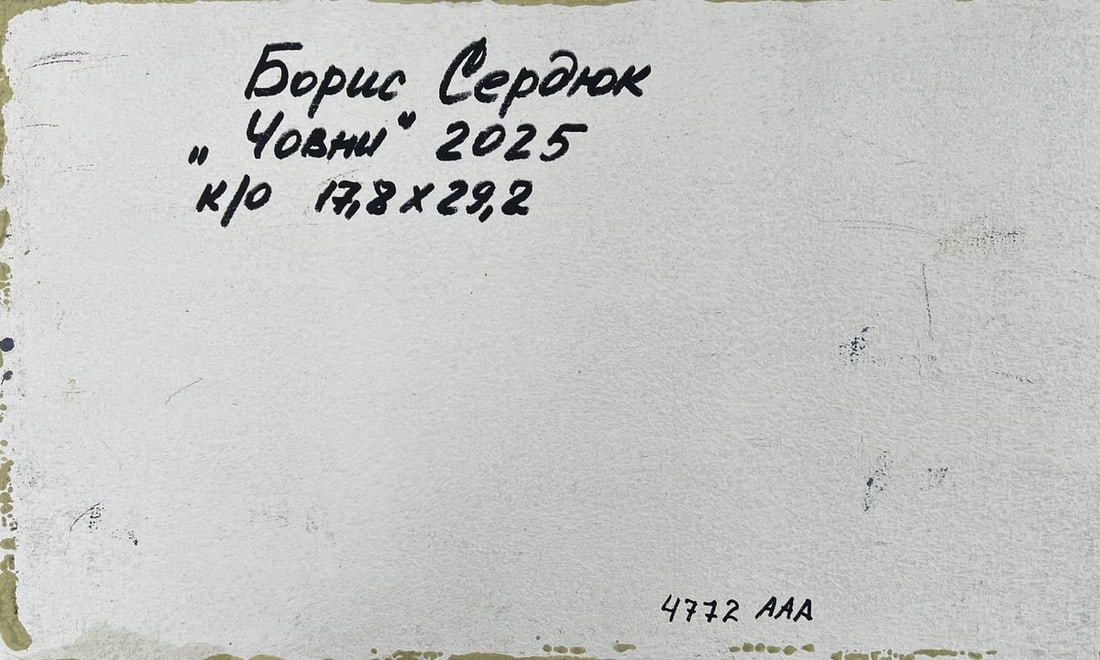 Борис Сердюк
„Човни" 2025
к/о 17,8 х 29,2
4772 ААА